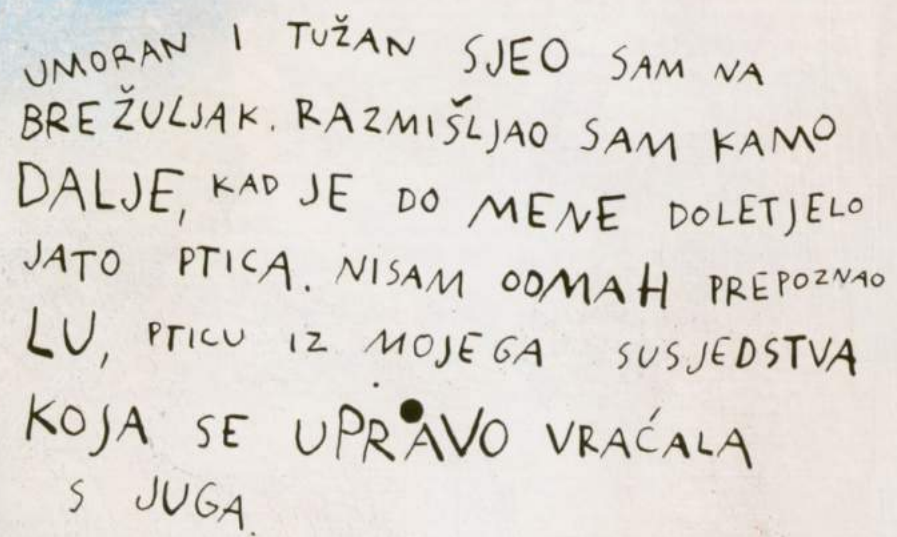 UMORAN I TUŽAN SJEO SAM NA
BREŽULJAK. RAZMIŠLJAO SAM KAMO
DALJE, KAD JE DO MENE DOLETJELO
JATO PTICA. NISAM ODMAH PREPOZNAO
LU, PTICU IZ MOJEGA SUSJEDSTVA
KOJA SE UPRAVO VRAĆALA
S JUGA.